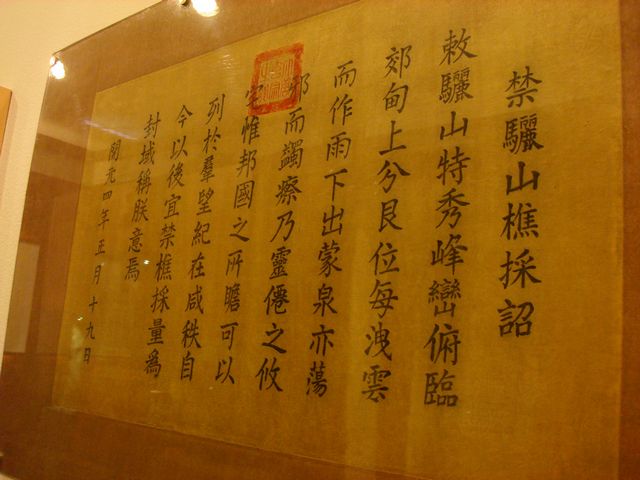 禁驪山樵採詔
敕驪山特秀峰巒俯臨
郊甸上兮艮位每洩雲
而作雨下出蒙泉亦蕩
邪而蠲瘵乃靈僊之攸
宅惟邦國之所瞻可以
列於羣望紀在咸秩自
今以後宜禁樵採量為
封域稱朕意焉
開元四年正月十九日